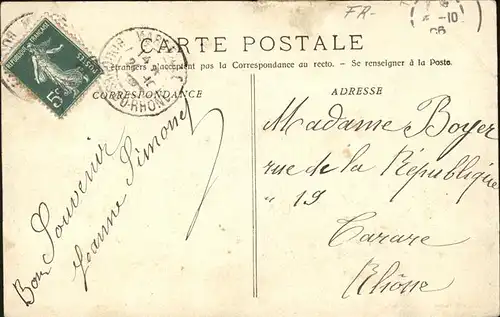 FR-
CARTE POSTALE
étrangers n'acceptent pas la Correspondance au recto. — Se renseigner à la Poste.
CORRESPONDANCE
ADRESSE
Bon Souvenir
Jeanne Simone
Madame Boyer
rue de la République
" 19
Tarare
Rhône